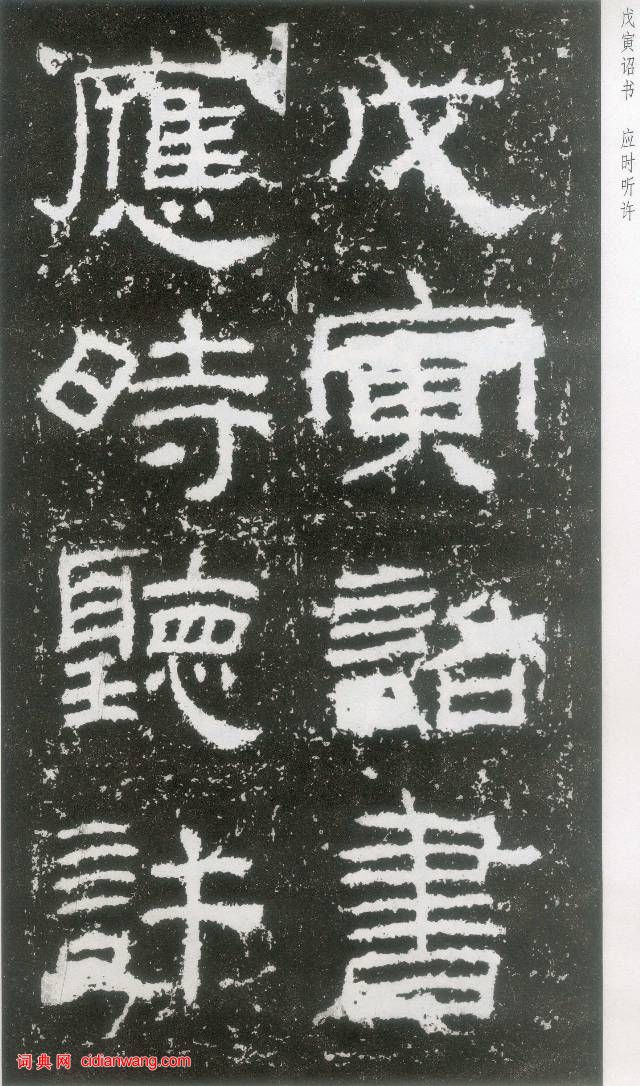 戊寅诏书 应时听许
戊寅詔書
應時聽許
词典网 cidianwang.com